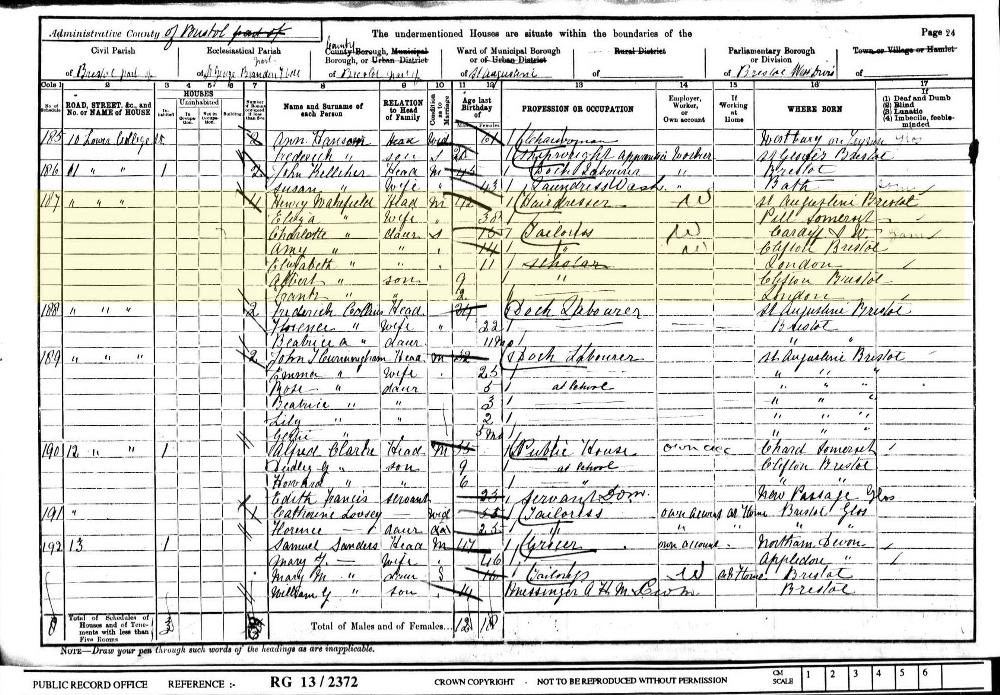 Administrative County of Bristol part of
The undermentioned Houses are situate within the boundaries of the
Page 24
Civil Parish
of Bristol part of
Ecclesiastical Parish part
of St George Brandon Hill
County Borough, Municipal Borough, or Urban District
of Bristol part of
Ward of Municipal Borough or of Urban District
of St Augustine
Rural District
of
Parliamentary Borough or Division
of Bristol West Divis
Town or Village or Hamlet
of
Cols 1 2 3 4 5 6 7 8 9 10 11 12 13 14 15 16 17
No. of Schedule
ROAD, STREET, &c., and No. or NAME of HOUSE
HOUSES
Inhabited
Uninhabited
In Occupation
Not in Occupation
Building
Name and Surname of each Person
RELATION to Head of Family
Condition as to Marriage
Age last Birthday of
Females
PROFESSION OR OCCUPATION
Employer, Worker, or Own account
If Working at Home
WHERE BORN
If
(1) Deaf and Dumb
(2) Blind
(3) Lunatic
(4) Imbecile, feeble-minded
185 10 Lower College St 2 Ann Head Wid Charwoman Westbury on Trym Glos
Frederick " son S Shipwright apprentice Worker St George Bristol
186 11 " " 1 2 John Kelleher Head M 45 Dock Labourer " Bristol
Susan " Wife " 43 Laundress Wash " Bath
187 " " " 4 Henry Wakefield Head M 42 Hairdresser W St Augustine Bristol
Eliza " Wife " Pill Somerset
Charlotte " daur S 16 Tailoress W Cardiff S W
Amy " " " 14 " W Clifton Bristol
Elizabeth " " 11 scholar London
Albert " son 9 " Clifton Bristol
Frank " " 2 London
188 " " " 2 Frederick Collins Head 24 Dock Labourer St Augustine Bristol
Florence " Wife " 22 Bristol
Beatrice a " daur 11 mo " "
189 " " " 2 John J Cunningham Head m 32 Dock Labourer St Augustine Bristol
Emma " Wife 25 " "
Rose " daur 5 at School " " "
Beatrice " " 3 " " "
Lily " " 2 " " "
" " 5 mo
190 12 " " 1 Alfred Clarke Head M 35 Public House own acc Chard Somerset
Dudley G " son 9 at school Clifton Bristol
Howard " " 6 " " "
Edith Francis servant 23 Servant Dom. New Passage Glos
191 " Catherine Lovsey wid 55 Tailoress own account at Home Bristol Glos
Florence — daur 25 " " " " "
192 13 1 Samuel Sanders Head M 47 Grocer own account Northam Devon
Mary G. — Wife " 46 Appledore "
Mary M " daur S 16 Tailoress W at Home Bristol
William G " son 14 Messenger Bristol
Total of Schedules of Houses and of Tenements with less than Five Rooms
Total of Males and of Females... 12 18
NOTE—Draw your pen through such words of the headings as are inapplicable.
PUBLIC RECORD OFFICE REFERENCE :- RG 13 / 2372 CROWN COPYRIGHT - NOT TO BE REPRODUCED WITHOUT PERMISSION CM SCALE 1 2 3 4 5 6